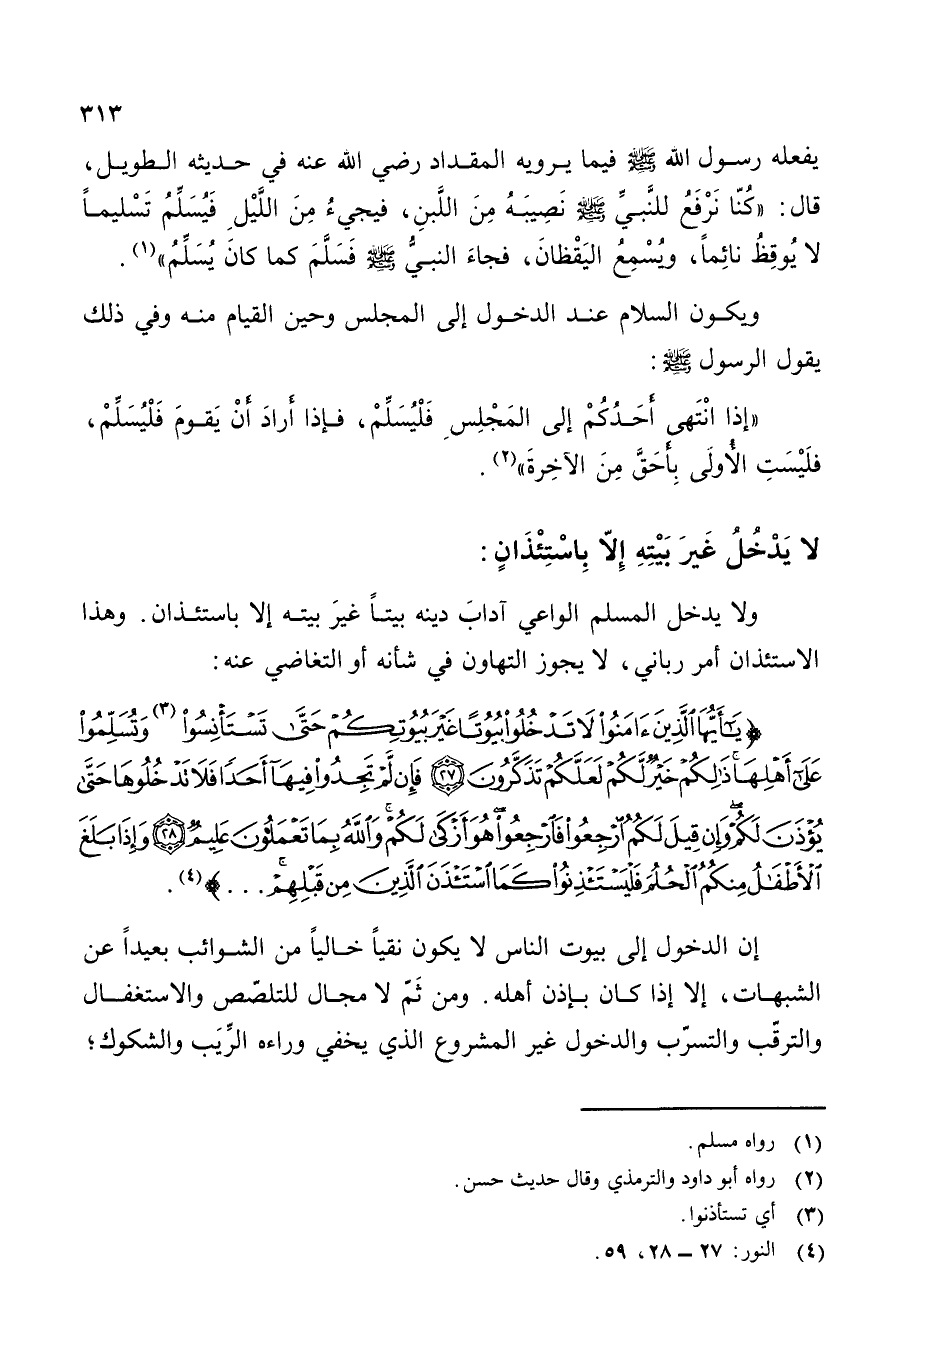 ٣١٣
يفعله رسول الله ﷺ فيما يرويه المقداد رضي الله عنه في حديثه الطويل،
قال: «كُنّا نَرْفَعُ للنَّبيِّ ﷺ نَصِيبَهُ مِنَ اللَّبنِ، فيجيءُ مِنَ اللَّيْلِ فَيُسَلِّمُ تَسْليماً
لا يُوقِظُ نائِماً، ويُسْمِعُ اليَقْظانَ، فجاءَ النبيُّ ﷺ فَسَلَّمَ كما كانَ يُسَلِّمُ»(١).
ويكون السلام عند الدخول إلى المجلس وحين القيام منه وفي ذلك
يقول الرسول ﷺ:
«إذا انْتَهى أَحَدُكُمْ إلى المَجْلِسِ فَلْيُسَلِّمْ، فإذا أَرادَ أَنْ يَقومَ فَلْيُسَلِّمْ،
فلَيْسَتِ الأُولَى بِأَحَقَّ مِنَ الآخِرةَ»(٢).
لا يَدْخُلُ غَيرَ بَيْتِهِ إلّا بِاسْتِئْذَانٍ:
ولا يدخل المسلم الواعي آدابَ دينه بيتاً غيرَ بيته إلا باستئذان. وهذا
الاستئذان أمر رباني، لا يجوز التهاون في شأنه أو التغاضي عنه:
﴿يَٰٓأَيُّهَا ٱلَّذِينَ ءَامَنُوا۟ لَا تَدْخُلُوا۟ بُيُوتًا غَيْرَ بُيُوتِكُمْ حَتَّىٰ تَسْتَأْنِسُوا۟(٣) وَتُسَلِّمُوا۟
عَلَىٰٓ أَهْلِهَا ۚ ذَٰلِكُمْ خَيْرٌ لَّكُمْ لَعَلَّكُمْ تَذَكَّرُونَ ۝٢٧ فَإِن لَّمْ تَجِدُوا۟ فِيهَآ أَحَدًا فَلَا تَدْخُلُوهَا حَتَّىٰ
يُؤْذَنَ لَكُمْ ۖ وَإِن قِيلَ لَكُمُ ٱرْجِعُوا۟ فَٱرْجِعُوا۟ ۖ هُوَ أَزْكَىٰ لَكُمْ ۚ وَٱللَّهُ بِمَا تَعْمَلُونَ عَلِيمٌ ۝٢٨ وَإِذَا بَلَغَ
ٱلْأَطْفَٰلُ مِنكُمُ ٱلْحُلُمَ فَلْيَسْتَـْٔذِنُوا۟ كَمَا ٱسْتَـْٔذَنَ ٱلَّذِينَ مِن قَبْلِهِمْ ۚ ...﴾(٤).
إن الدخول إلى بيوت الناس لا يكون نقياً خالياً من الشوائب بعيداً عن
الشبهات، إلا إذا كان بإذن أهله. ومن ثَمّ لا مجال للتلصّص والاستغفال
والترقّب والتسرّب والدخول غير المشروع الذي يخفي وراءه الرِّيَب والشكوك؛
(١) رواه مسلم.
(٢) رواه أبو داود والترمذي وقال حديث حسن.
(٣) أي تستأذنوا.
(٤) النور: ٢٧ - ٢٨، ٥٩.